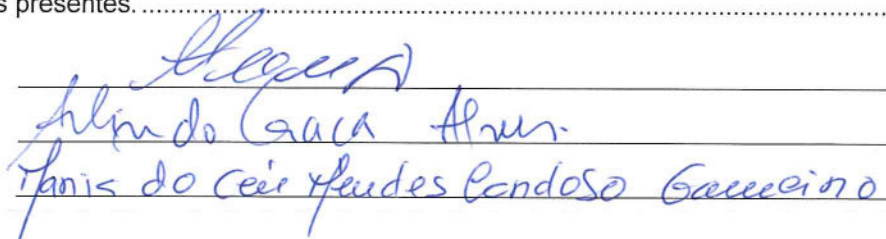 s presentes. ........................................................................
Arlindo Graça Alves
Maria do Céu Mendes Cardoso Gameiro